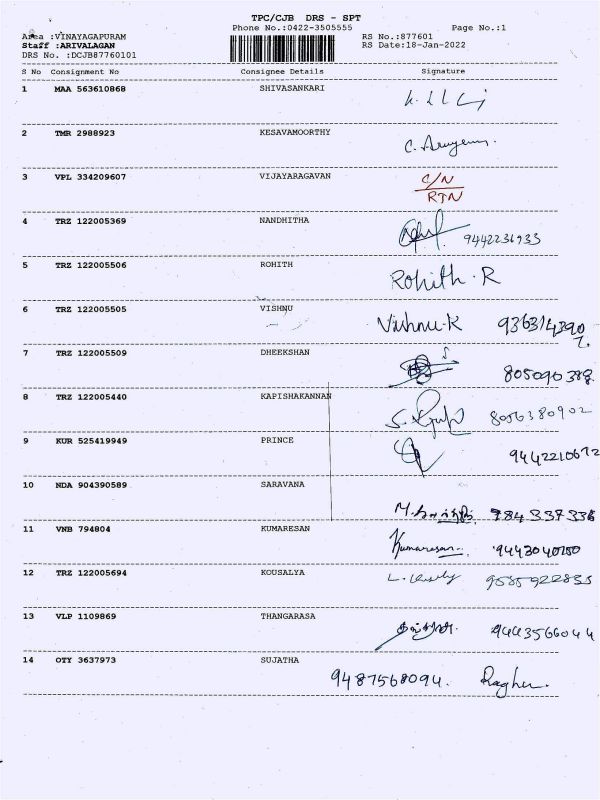 TPC/CJB DRS - SPT
Phone No.:0422-3505555 Page No.:1
Area :VINAYAGAPURAM RS No.:877601
Staff :ARIVALAGAN RS Date:18-Jan-2022
DRS No. :DCJB87760101
S No Consignment No Consignee Details Signature
1 MAA 563610868 SHIVASANKARI
2 TMR 2988923 KESAVAMOORTHY
3 VPL 334209607 VIJAYARAGAVAN C/N
RTN
4 TRZ 122005369 NANDHITHA 9442236933
5 TRZ 122005506 ROHITH Rohith.R
6 TRZ 122005505 VISHNU Vishnu.K
7 TRZ 122005509 DHEEKSHAN
8 TRZ 122005440 KAPISHAKANNAN 8056380902
9 KUR 525419949 PRINCE 9442210672
10 NDA 904390589 SARAVANA
11 VNB 794804 KUMARESAN Kumaresan
12 TRZ 122005694 KOUSALYA 9585922835
13 VLP 1109869 THANGARASA 9443566044
14 OTY 3637973 SUJATHA 9487568094. Raghu.